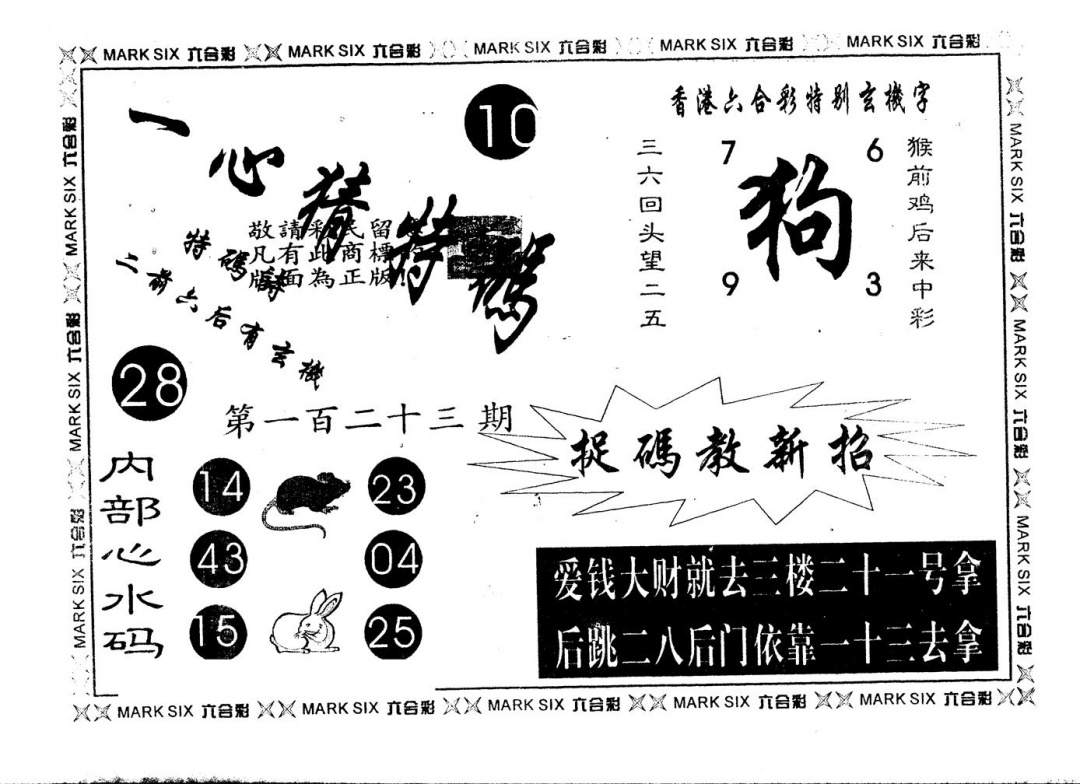 MARK SIX 六合彩 MARK SIX 六合彩 MARK SIX 六合彩 MARK SIX 六合彩 MARK SIX 六合彩
一心猜特碼
10
敬請彩民留意
凡有此商標的
版面為正版!
特碼詩
二前六后有玄機
28
第一百二十三期
香港六合彩特别玄機字
三六回头望二五
7
6
狗
9
3
猴前鸡后来中彩
捉碼教新招
内部心水码
14
23
43
04
15
25
爱钱大财就去三楼二十一号拿
后跳二八后门依靠一十三去拿
MARK SIX 六合彩 MARK SIX 六合彩 MARK SIX 六合彩
MARK SIX 六合彩 MARK SIX 六合彩 MARK SIX 六合彩
MARK SIX 六合彩 MARK SIX 六合彩 MARK SIX 六合彩 MARK SIX 六合彩 MARK SIX 六合彩